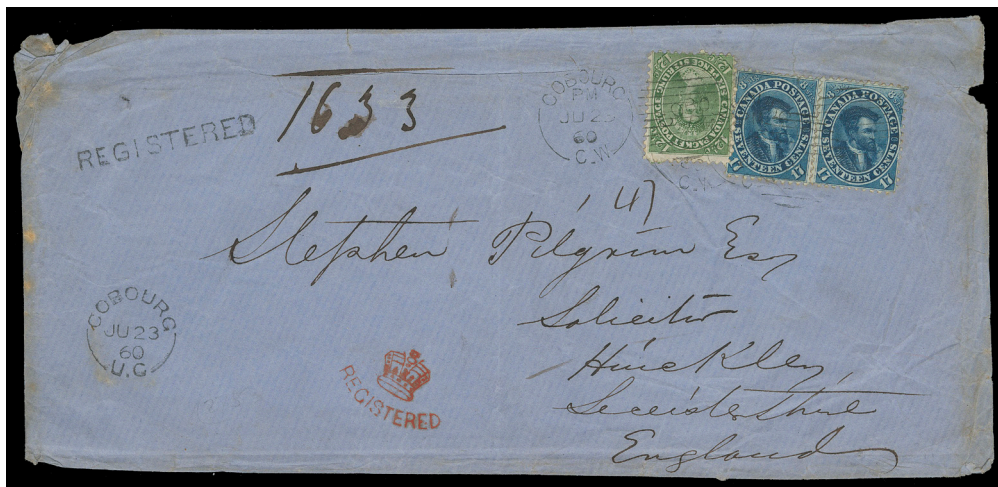 REGISTERED
1633
COBOURG
PM
JU 23
60
C.W.
CANADA PACKET POSTAGE
12½
CANADA POSTAGE
SEVENTEEN CENTS
17 17
CANADA POSTAGE
SEVENTEEN CENTS
17 17
C.W
Stephen Pilgrim Esq
Solicitor
Hinckley
Leicestershire
England
COBOURG
JU 23
60
U.C
REGISTERED